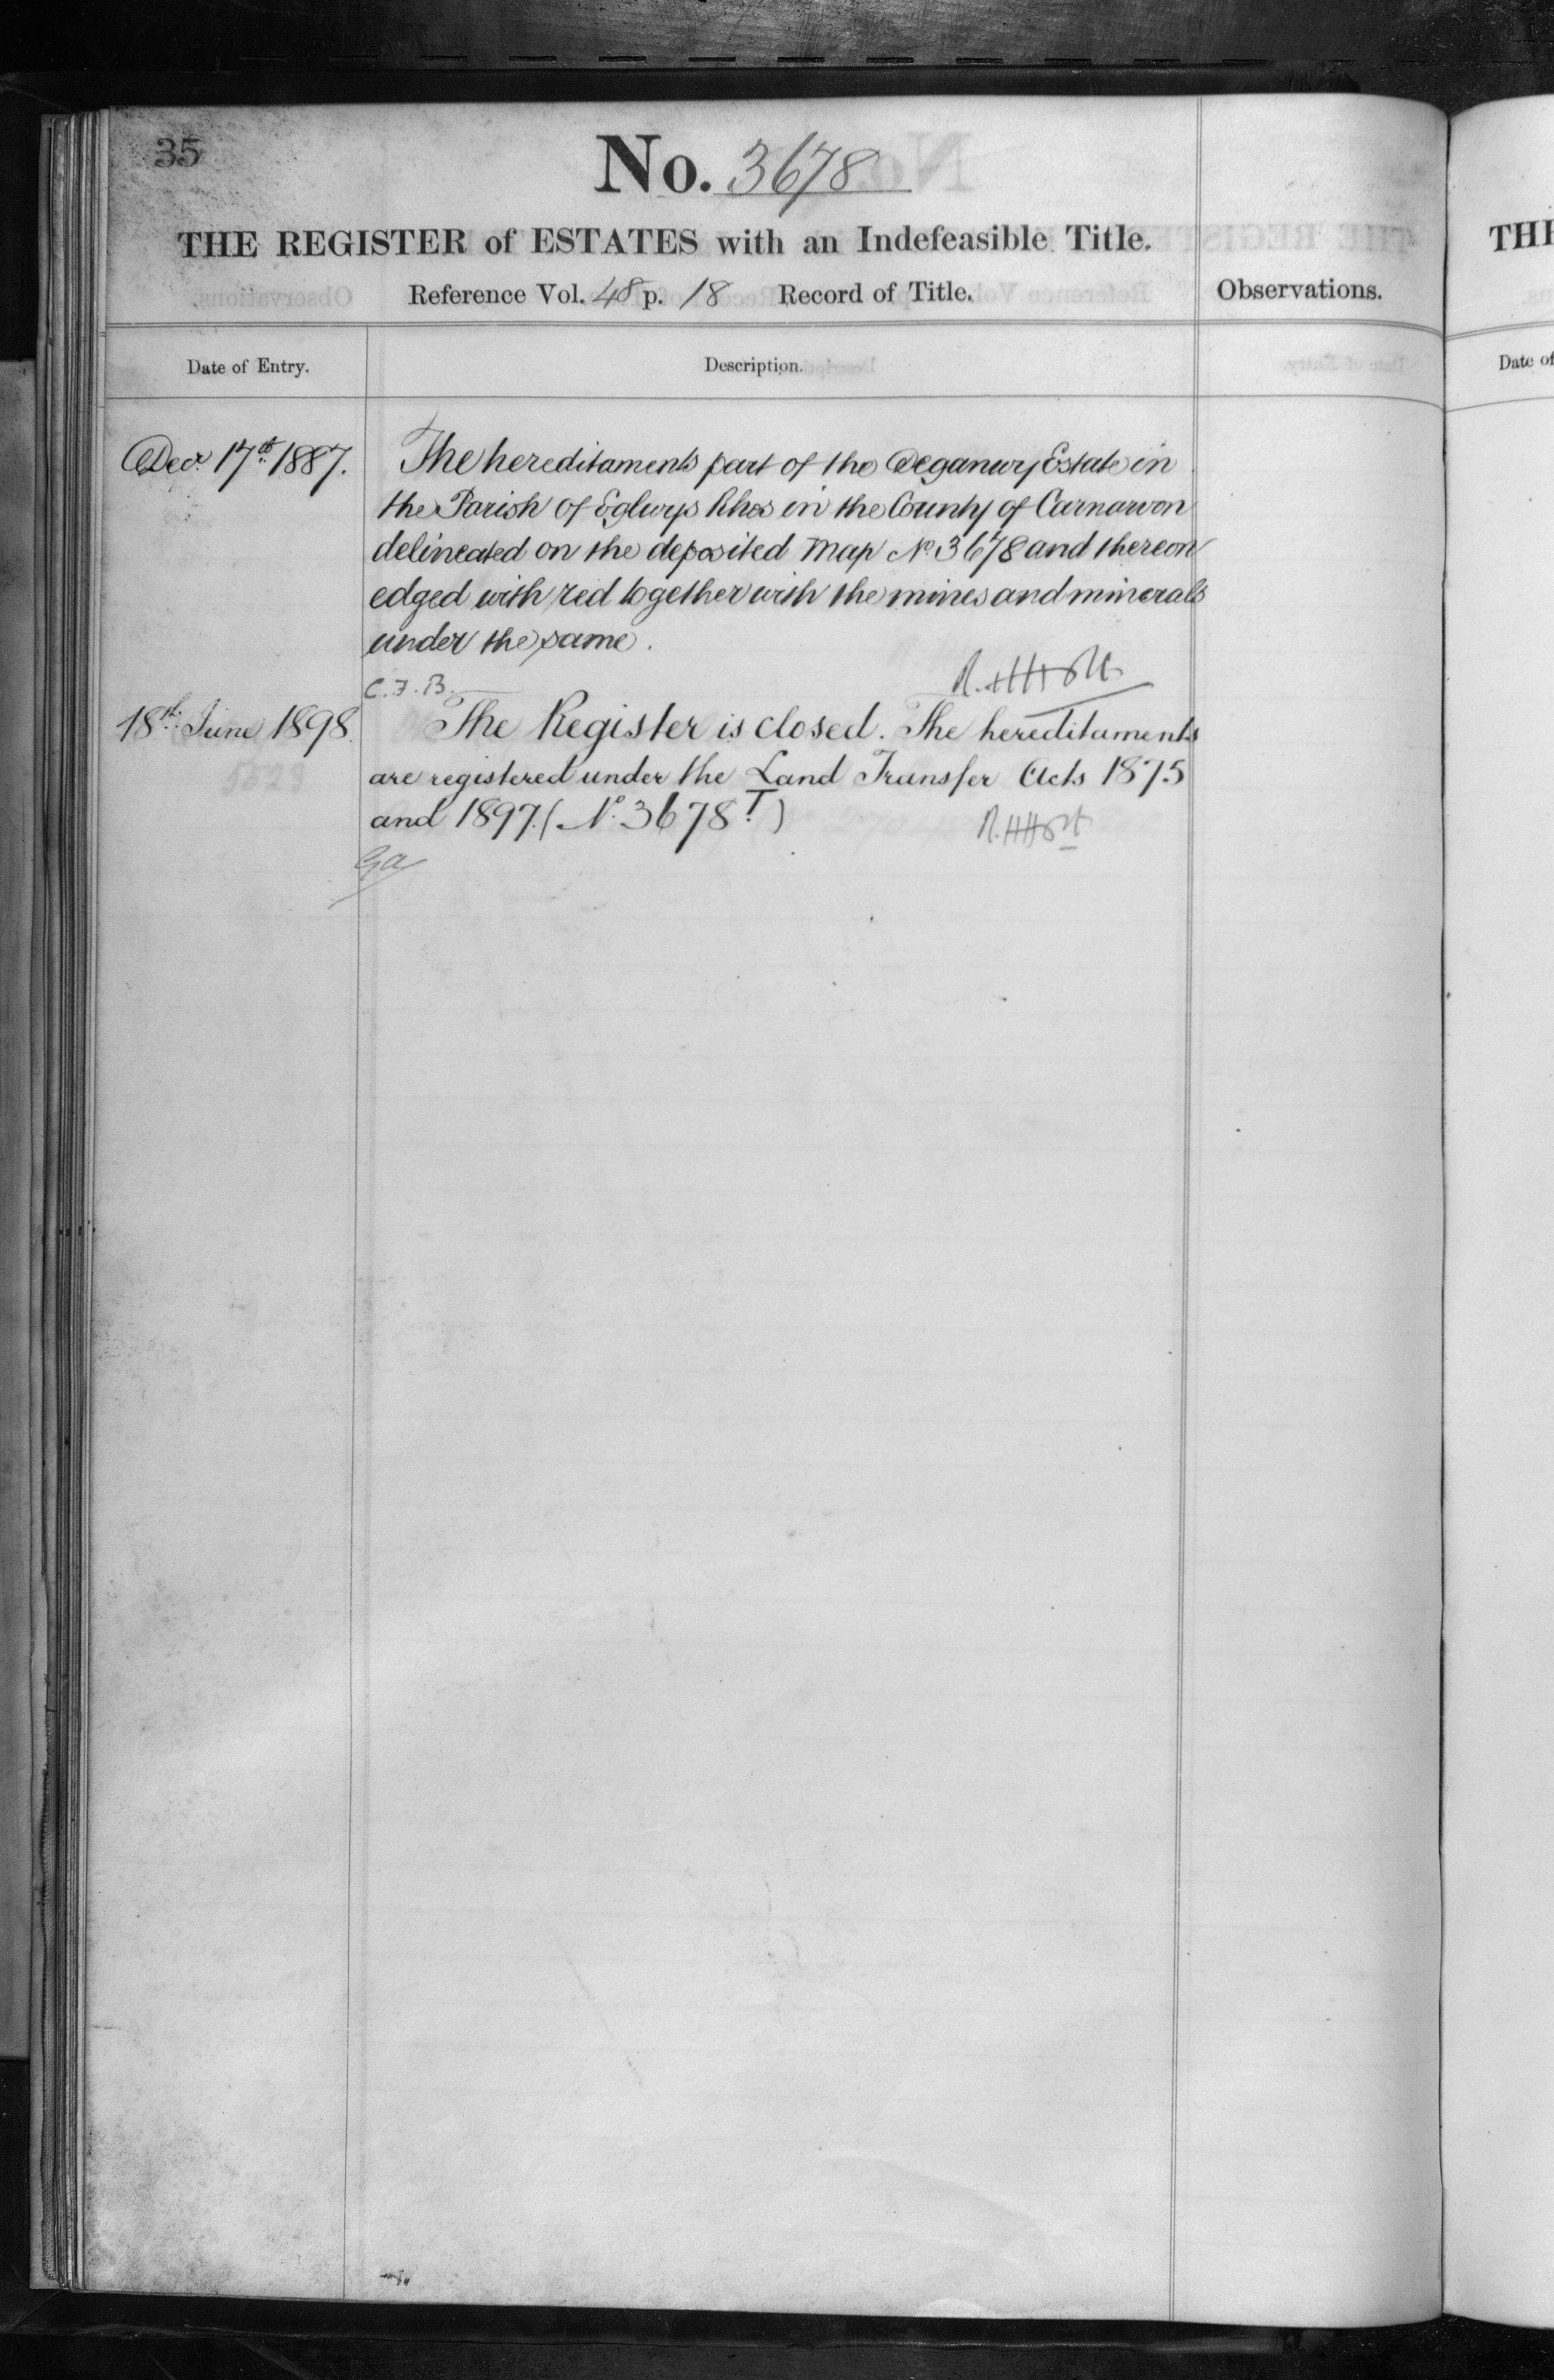 35
No. 3678
THE REGISTER of ESTATES with an Indefeasible Title.
Reference Vol. 48 p. 18 Record of Title.
Observations.
Date of Entry.
Description.
Decr 17th 1887.
The hereditaments part of the Deganwy Estate in
the Parish of Eglwys Rhos in the County of Carnarvon
delineated on the deposited Map No. 3678 and thereon
edged with red together with the mines and minerals
under the same.
C.F.B.
R.H.Holt
18th June 1898.
The Register is closed. The hereditaments
are registered under the Land Transfer Acts 1875
and 1897. (No. 3678T.)
R.H.Holt
Ga
THE
Date of